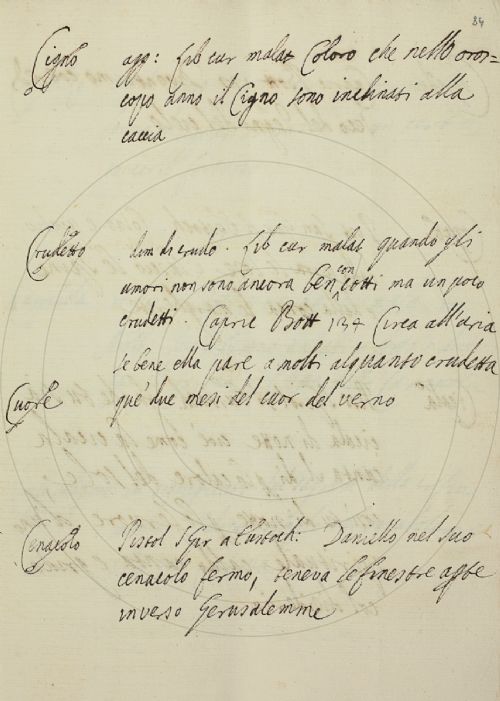 84
Cigno agg: Lib cur malat Coloro che nello oros=
copo anno il Cigno sono inclinati alla
caccia
Crudetto dim di crudo. Lib cur malat quando gli
umori non sono ancora ben concotti ma un poco
crudetti. Capric Bott 134 Circa all'aria
se bene ella pare a molti alquanto crudetta
Cuore que' due mesi del cuor del verno
Cenacolo Pistol S Gir a Eustoch: Daniello nel suo
cenacolo fermo, teneva le finestre
inverso Gerusalemme